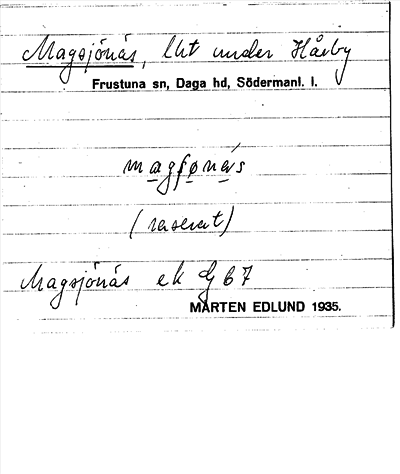 Magsjönäs, lht under Hårby
Frustuna sn, Daga hd, Södermanl. l.
magſonäs
(raserat)
Magsjönäs ek G 67
MÅRTEN EDLUND 1935.